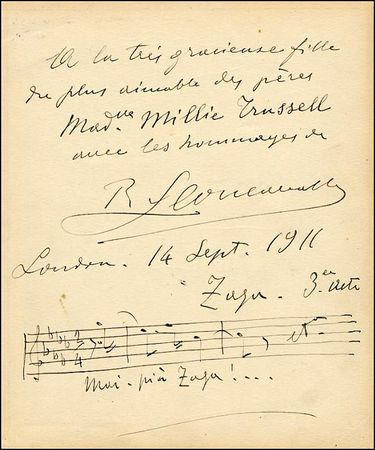 A la très gracieuse fille
du plus aimable des pères
Mad.lle Millie Trussell
avec les hommages de
R Leoncavallo
London. 14 Sept. 1911
Zaza. 3.e acte
Mai più Zaza!....